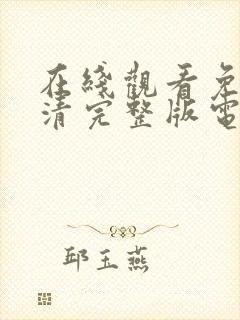 在綫觀看免
清完整版電
邱玉燕